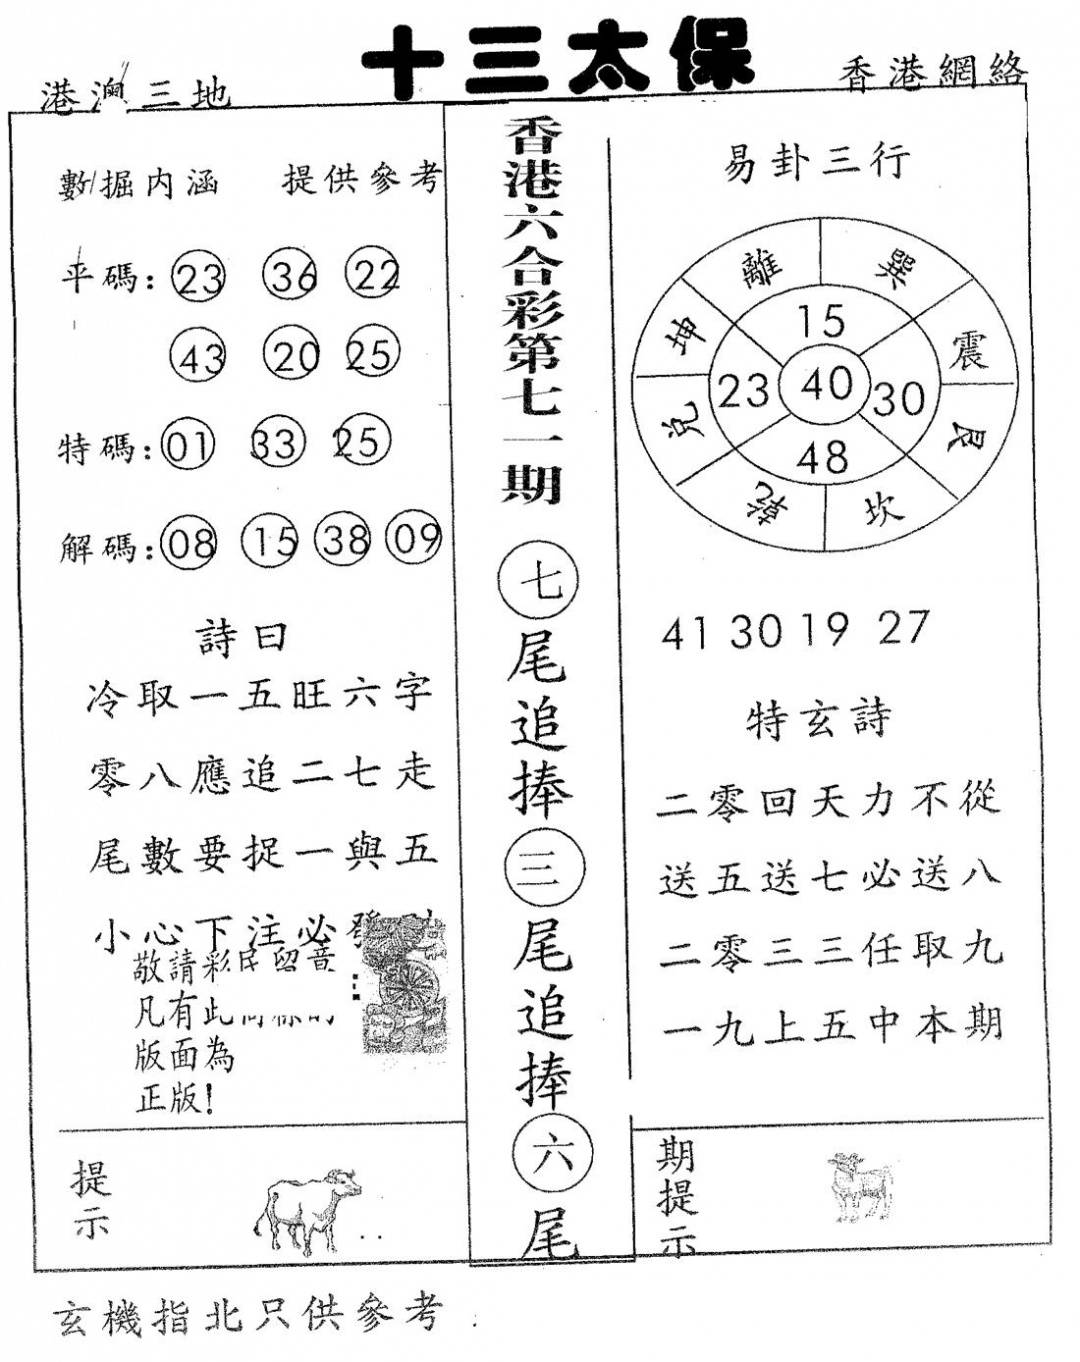 十三太保
港澳三地
香港網絡
數掘内涵 提供參考
平碼：23 36 22
43 20 25
特碼：01 33 25
解碼：08 15 38 09
詩曰
冷取一五旺六字
零八應追二七走
尾數要捉一與五
小心下注必發
敬請彩民留意
凡有此
版面為
正版！
提示
香港六合彩第七一期
七尾追捧三尾追捧六尾
易卦三行
離 巽
坤 震
兌 艮
乾 坎
15
23 40 30
48
41 30 19 27
特玄詩
二零回天力不從
送五送七必送八
二零三三任取九
一九上五中本期
期提示
玄機指北只供參考